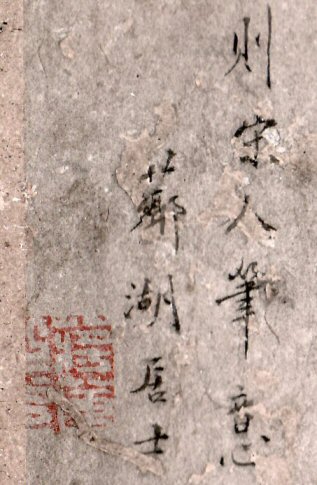 則宋人筆意
薌湖居士